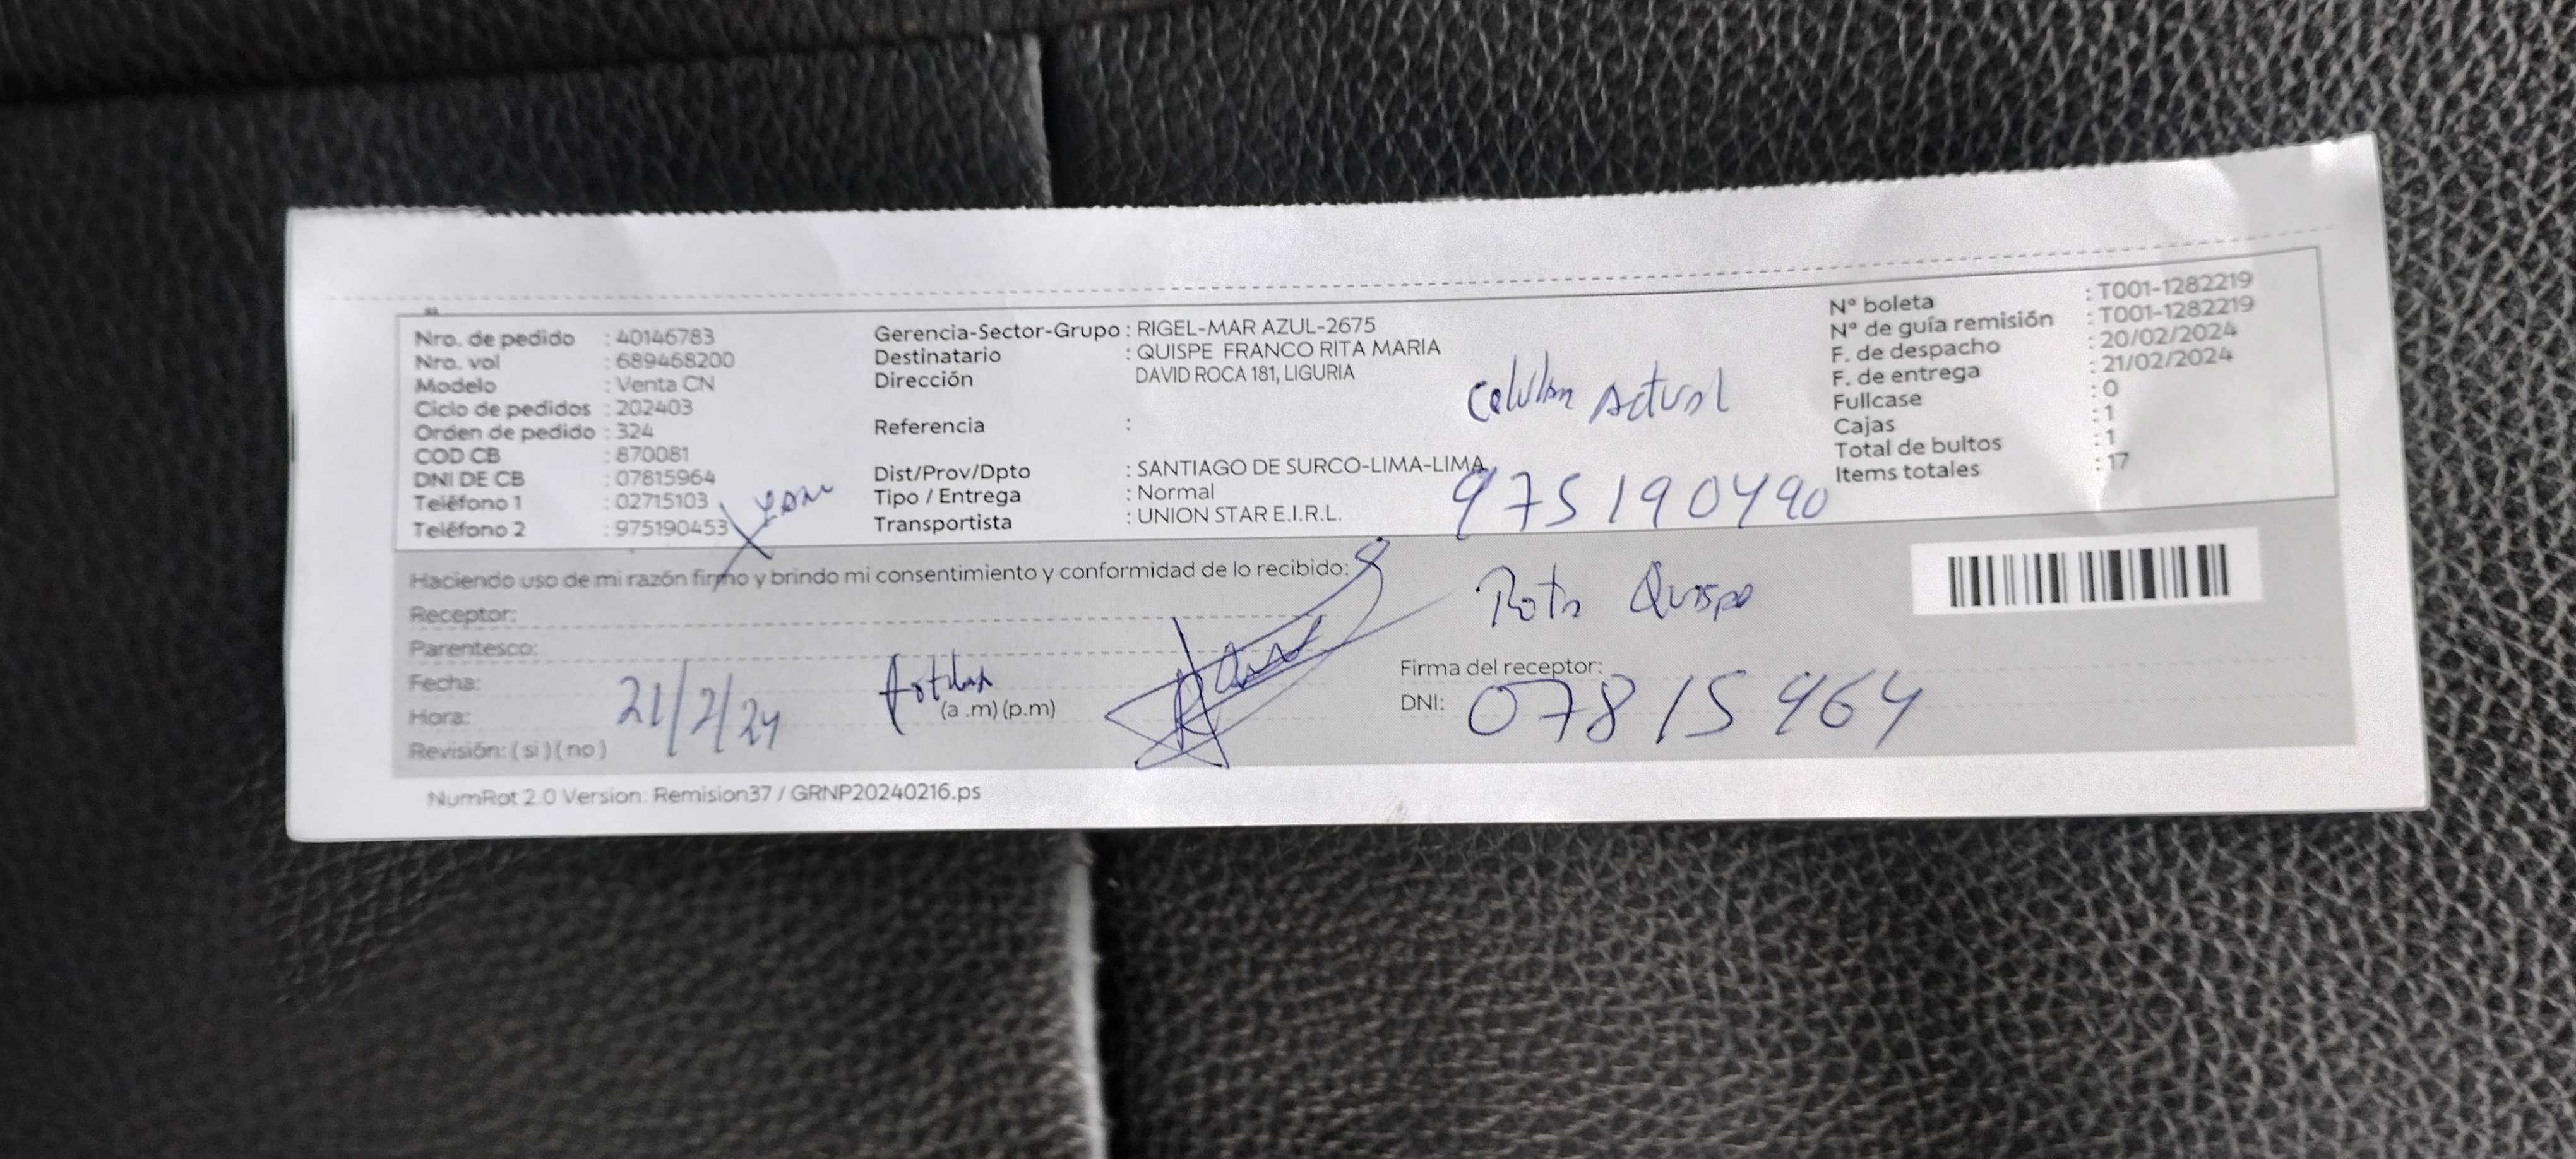 Nro. de pedido : 40146783
Nro. vol : 689468200
Modelo : Venta CN
Ciclo de pedidos : 202403
Orden de pedido : 324
COD CB : 870081
DNI DE CB : 07815964
Teléfono 1 : 02715103
Teléfono 2 : 975190453
Gerencia-Sector-Grupo : RIGEL-MAR AZUL-2675
Destinatario : QUISPE FRANCO RITA MARIA
Dirección DAVID ROCA 181, LIGURIA
Referencia :
Dist/Prov/Dpto : SANTIAGO DE SURCO-LIMA-LIMA
Tipo / Entrega : Normal
Transportista : UNION STAR E.I.R.L.
Celular Actual
975190490
N° boleta : T001-1282219
N° de guía remisión : T001-1282219
F. de despacho : 20/02/2024
F. de entrega : 21/02/2024
Fullcase : 0
Cajas : 1
Total de bultos : 1
Items totales : 17
Haciendo uso de mi razón firmo y brindo mi consentimiento y conformidad de lo recibido:
Receptor:
Parentesco:
Fecha:
Hora: (a .m) (p.m)
21/2/24
Revisión: ( si ) ( no )
Rita Quispe
Firma del receptor:
DNI: 07815964
NumRot 2.0 Version: Remision37 / GRNP20240216.ps